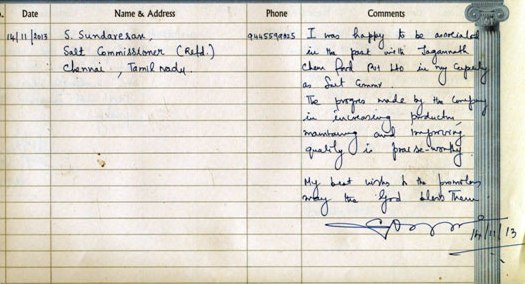 Date Name & Address Phone Comments
14/11/2013 S. Sundaresan, 9445598025 I was happy to be associated
Salt Commissioner (Retd.) in the past with Jagannath
Chennai, Tamil nadu. Chem Food Pvt Ltd in my Capacity
as Salt Commr
The progress made by the Company
in increasing production,
maintaining and improving
quality is praise-worthy
My best wishes to the promoters
may the God bless Them
14/11/13